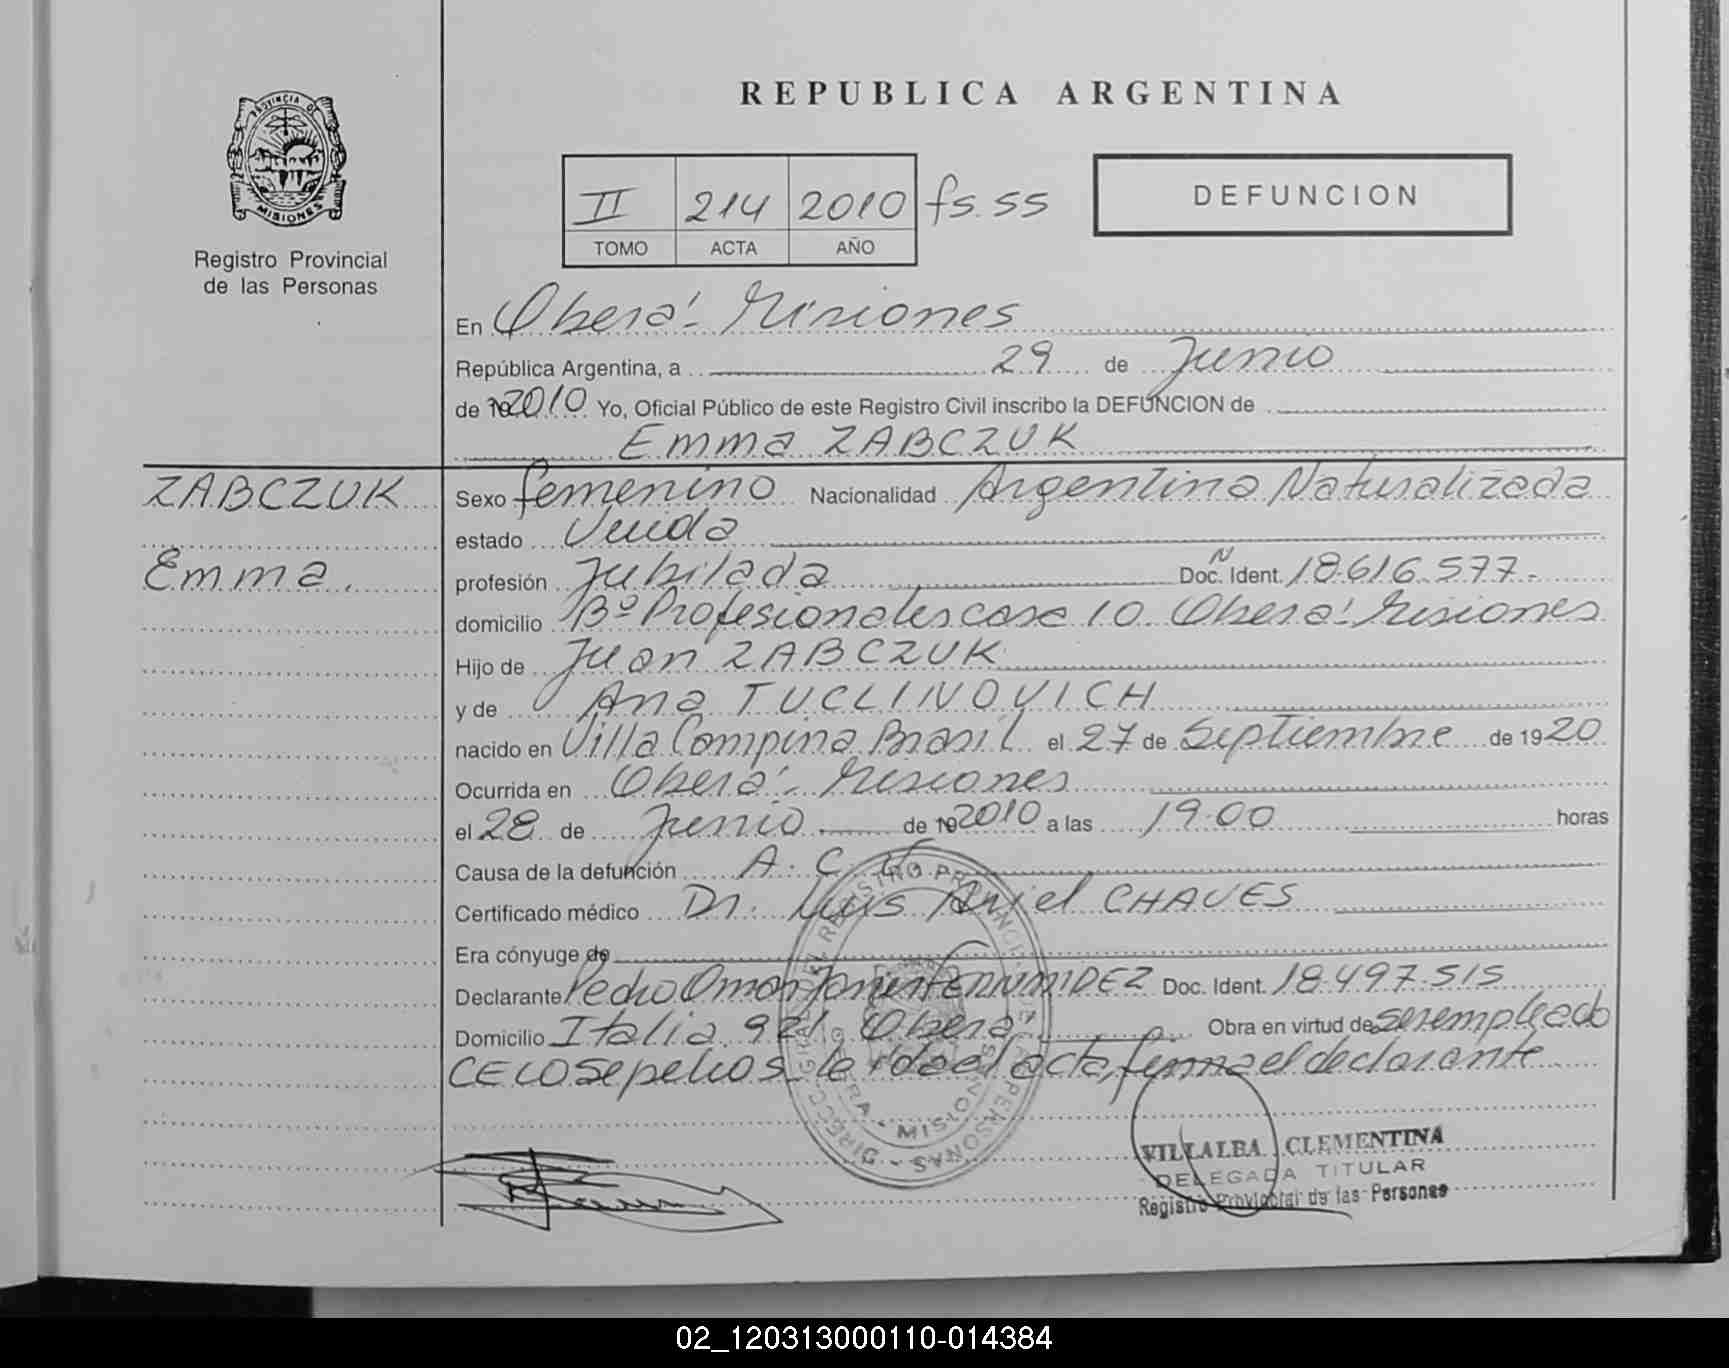 PROVINCIA DE
MISIONES
Registro Provincial
de las Personas
REPUBLICA ARGENTINA
II 214 2010 fs. 55
TOMO ACTA AÑO
DEFUNCION
En Oberá - Misiones
República Argentina, a 29 de Junio
de 19 2010 Yo, Oficial Público de este Registro Civil inscribo la DEFUNCION de
Emma ZABCZUK
ZABCZUK
Emma.
Sexo femenino Nacionalidad Argentina Naturalizada
estado Viuda
profesión Jubilada Doc. Ident. Nº 18.616.577-
domicilio Bº Profesionales casa 10. Oberá - Misiones
Hijo de Juan ZABCZUK
y de Ana TUCLINOVICH
nacido en Villa Campina Brasil el 27 de Septiembre de 1920
Ocurrida en Oberá - Misiones
el 28 de Junio de 19 2010 a las 19.00 horas
Causa de la defunción A. C.
Certificado médico Dr. Luis Ariel CHAVES
Era cónyuge de
Declarante Pedro Omar Doc. Ident. 18.497.515
Domicilio Italia 921 Oberá Obra en virtud de ser empleado
CELO Sepelios leída el acta, firma el declarante
VILLALBA CLEMENTINA
DELEGADA TITULAR
Registro Provincial de las Personas
02_120313000110-014384